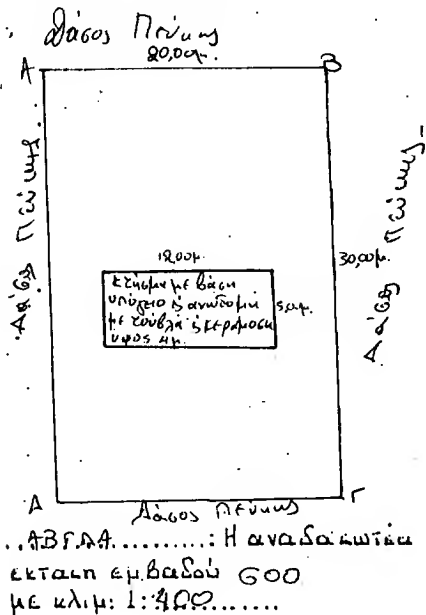 Δάσος Πεύκης
20,00μ.
Α
Β
Δάσος Πεύκης
Δάσος Πεύκης
30,00μ.
12,00μ.
κτίσμα με βάση
υπόγειο & ανωδομή
με τούβλα & κεραμοσκ
ύψος 4μ.
5,00μ.
Δ
Γ
Δάσος Πεύκης
..ΑΒΓΔΑ..........: Η αναδασωτέα
έκταση εμβαδού 600
με κλιμ: 1:400.......